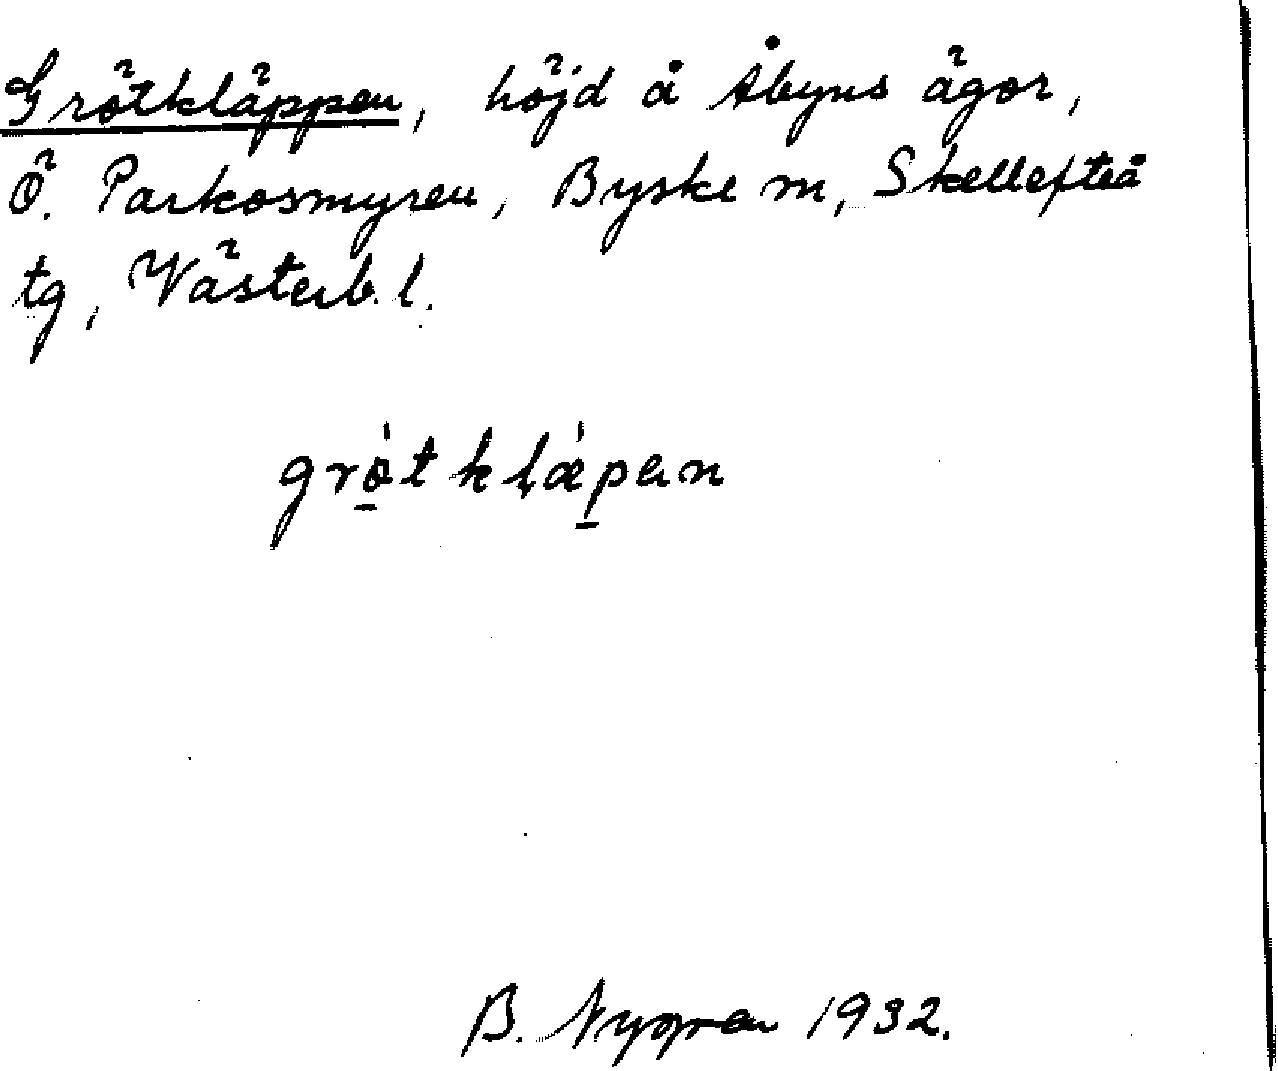 Grötkläppen, höjd å Åbyns ägor,
Ö. Parkosmyren, Byske m, Skellefteå
tg, Västerb. l.
grö̀tklæ̀pen
B. Nygren 1932.